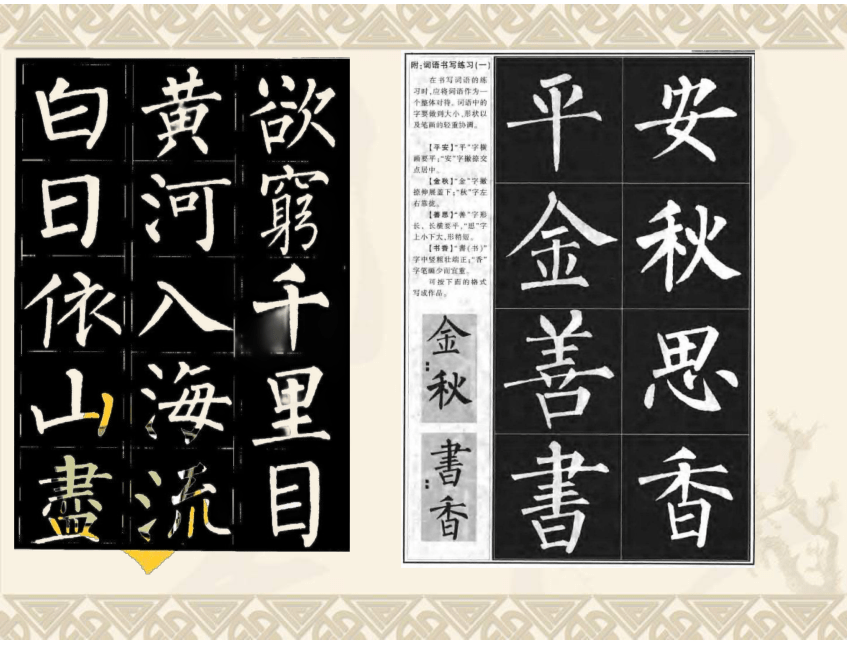 白日依山盡
黄河入海流
欲窮千里目
附:词语书写练习(一)
在书写词语的练
习时,应将词语作为一
个整体对待。词语中的
字要做到大小、形状以
及笔画的轻重协调。
【平安】“平”字横
画要平;“安”字撇捺交
点居中。
【金秋】“金”字撇
捺伸展盖下;“秋”字左
右靠拢。
【善思】“善”字形
长，长横要平，“思”字
上小下大,形稍扁。
【书香】“書(书)”
字中竖粗壮端正;“香”
字笔画少而宜重。
可按下面的格式
写成作品。
金秋
書香
平安
金秋
善思
書香